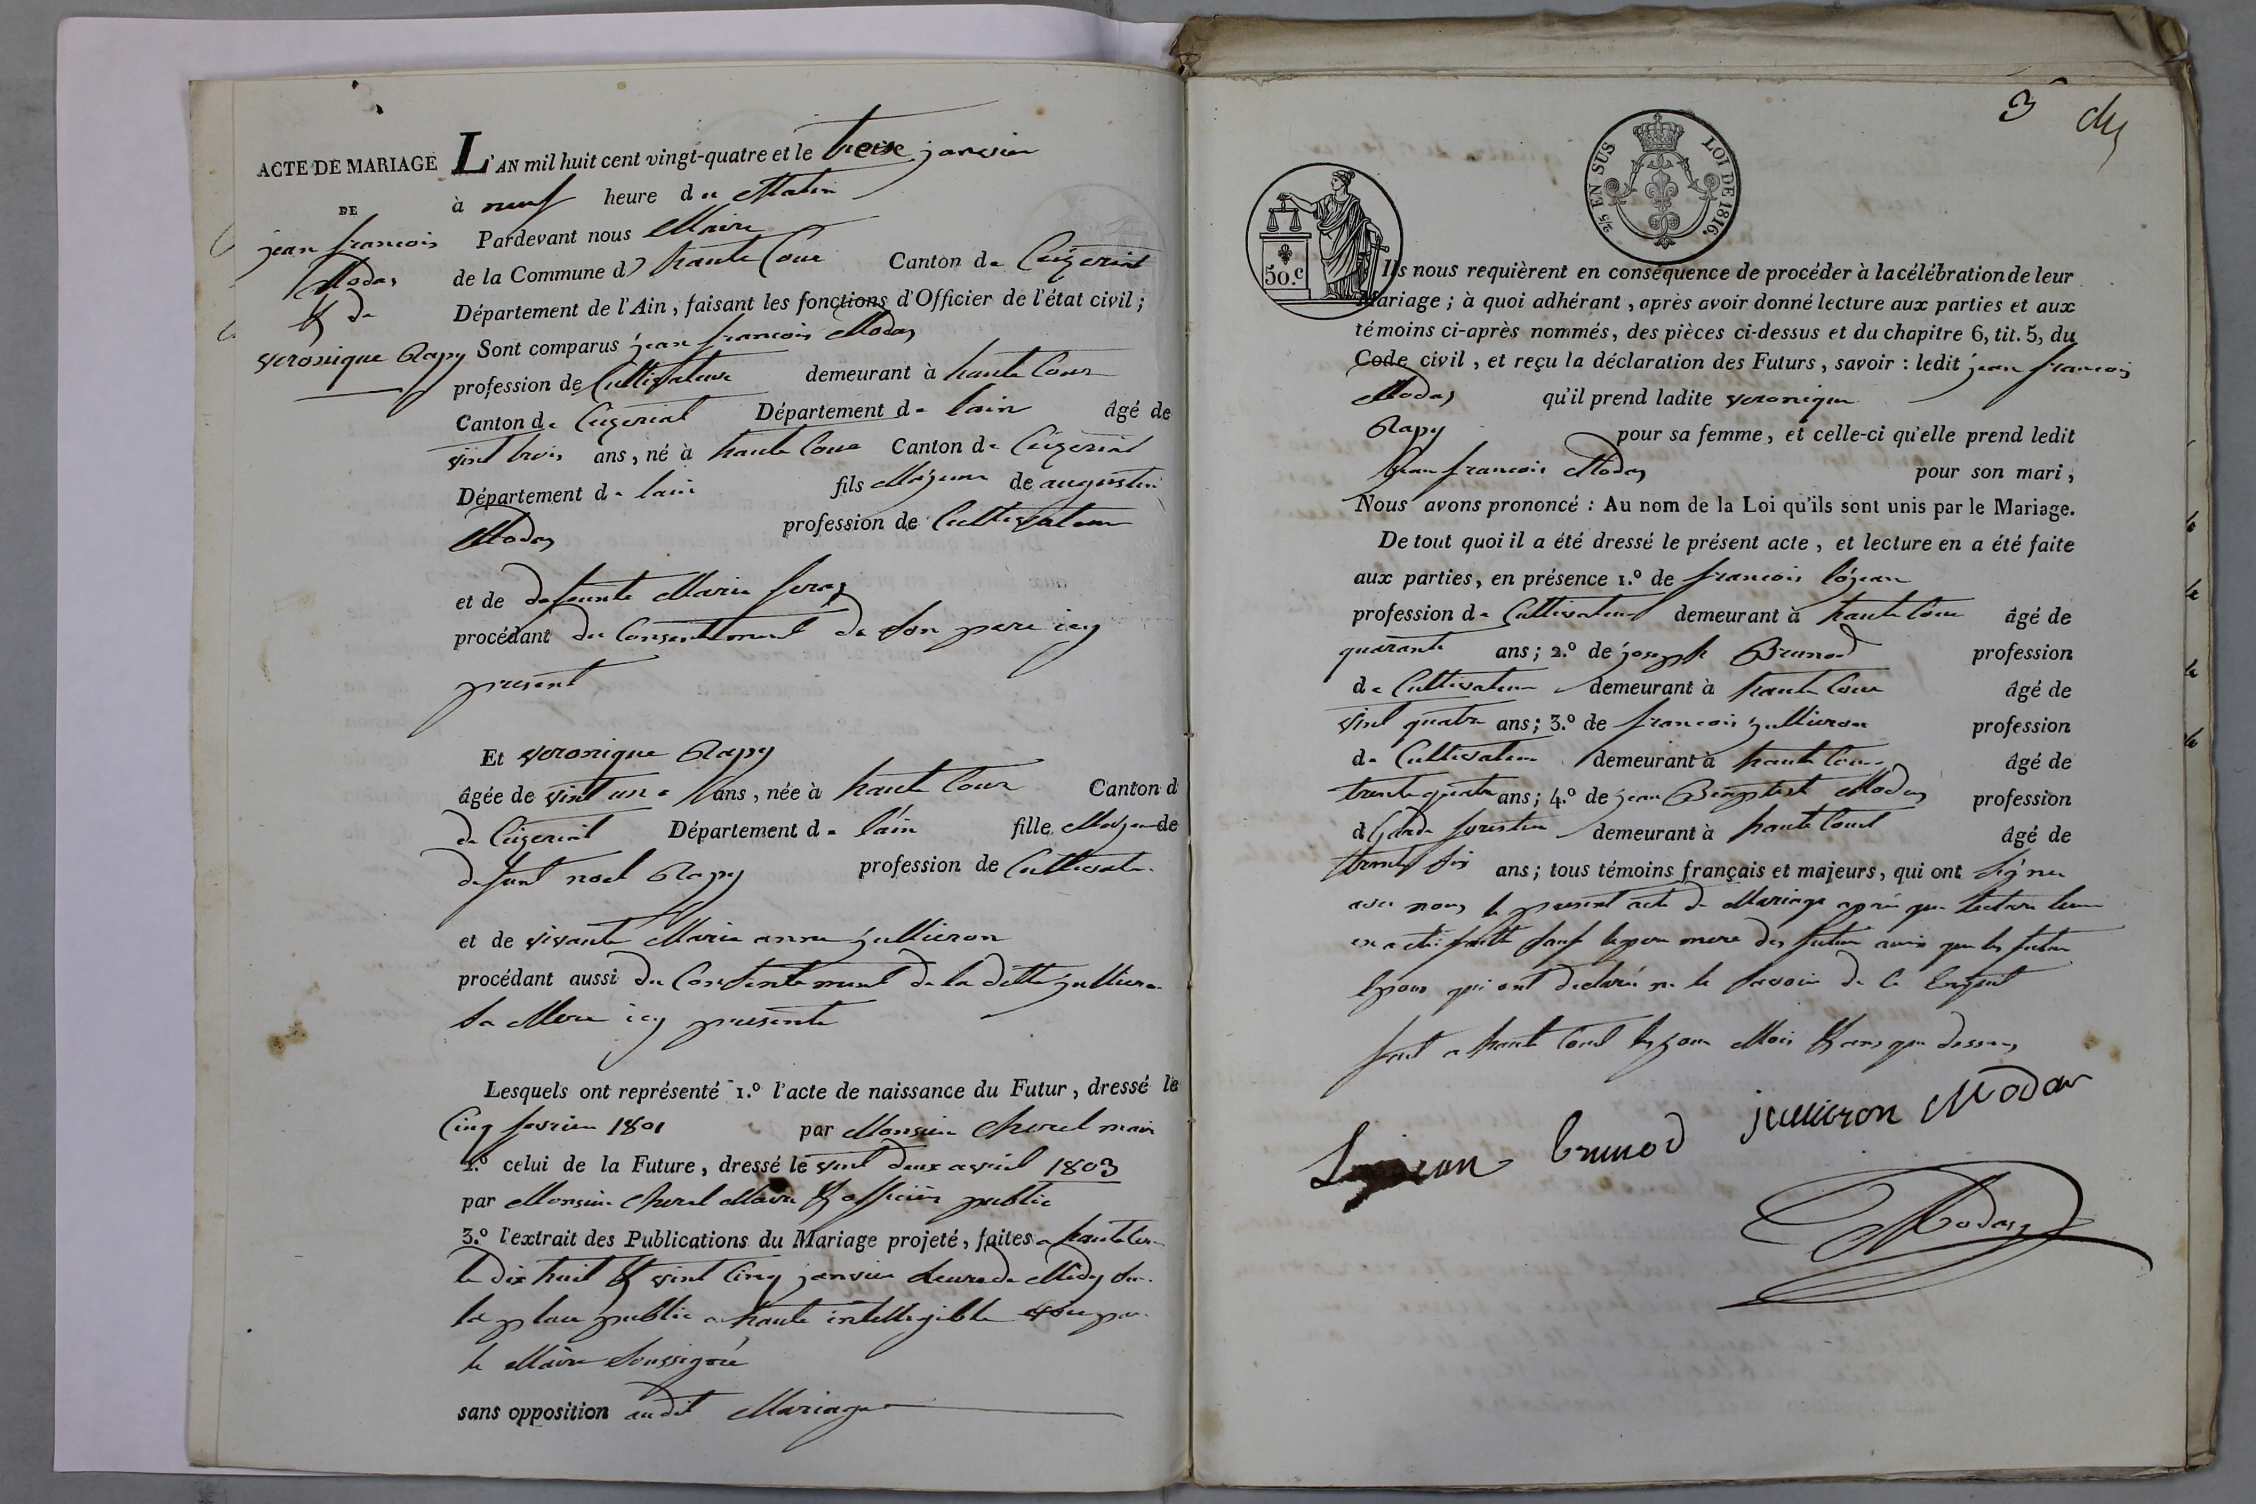 ACTE DE MARIAGE
DE
jean francois
Modas
& de
veronique Rapy
L'AN mil huit cent vingt-quatre et le treise janvier
à neuf heure du Matin
Pardevant nous Maire
de la Commune d haute Cour Canton de Ceÿzeriat
Département de l'Ain, faisant les fonctions d'Officier de l'état civil;
Sont comparus jean francois Modas
profession de Cultivateur demeurant à haute Cour
Canton de Ceÿzeriat Département de lain âgé de
vint trois ans, né à haute Cour Canton de Ceÿzeriat
Département de lain fils Majeur de augustin
Modas profession de Cultivateur
et de defeunte Marie
procédant du Consentement de son pere icy
present
Et veronique Rapy
âgée de vint une ans, née à haute Cour Canton d
de Ceÿzeriat Département de lain fille Majeure de
defunt noel Rapy profession de Cultivateur
et de vivante Marie anne jullieron
procédant aussi du Consentement de la ditte jullieron
sa Mere icy presente
Lesquels ont représenté 1.º l'acte de naissance du Futur, dressé le
Cinq fevrier 1801 par Monsieur Chorel maire
2.º celui de la Future, dressé le vint deux avril 1803
par Monsieur Chorel Maire & officier public
3.º l'extrait des Publications du Mariage projeté, faites a haute Cour
le dix huit & vint Cinq janvier heure de Midy sur
la place public a haute intelligible voix par
le Maire Soussigné
sans opposition audit Mariage
3
50.c
2/5 EN SUS LOI DE 1816.
Ils nous requièrent en conséquence de procéder à la célébration de leur
Mariage; à quoi adhérant, après avoir donné lecture aux parties et aux
témoins ci-après nommés, des pièces ci-dessus et du chapitre 6, tit. 5, du
Code civil, et reçu la déclaration des Futurs, savoir: ledit jean francois
Modas qu'il prend ladite veronique
Rapy pour sa femme, et celle-ci qu'elle prend ledit
jean francois Modas pour son mari,
Nous avons prononcé: Au nom de la Loi qu'ils sont unis par le Mariage.
De tout quoi il a été dressé le présent acte, et lecture en a été faite
aux parties, en présence 1.º de francois
profession de Cultivateur demeurant à haute Cour âgé de
quarante ans; 2.º de joseph Brunod profession
de Cultivateur demeurant à haute Cour âgé de
vint quatre ans; 3.º de francois jullieron profession
de Cultivateur demeurant à haute Cour âgé de
trente quatre ans; 4.º de jean Baptist Modas profession
d Garde forestier demeurant à haute Court âgé de
trente six ans; tous témoins français et majeurs, qui ont signer
avec nous le present acte de Mariage après que lecture leur
en a été faitte sauf le pere mere des futur ainsi que les futur
Epoux qui ont declaré ne le savoir de Ce Enquit
fait a haute Court les jour Mois & ans que dessus
brunod jullieron Modas
Modas